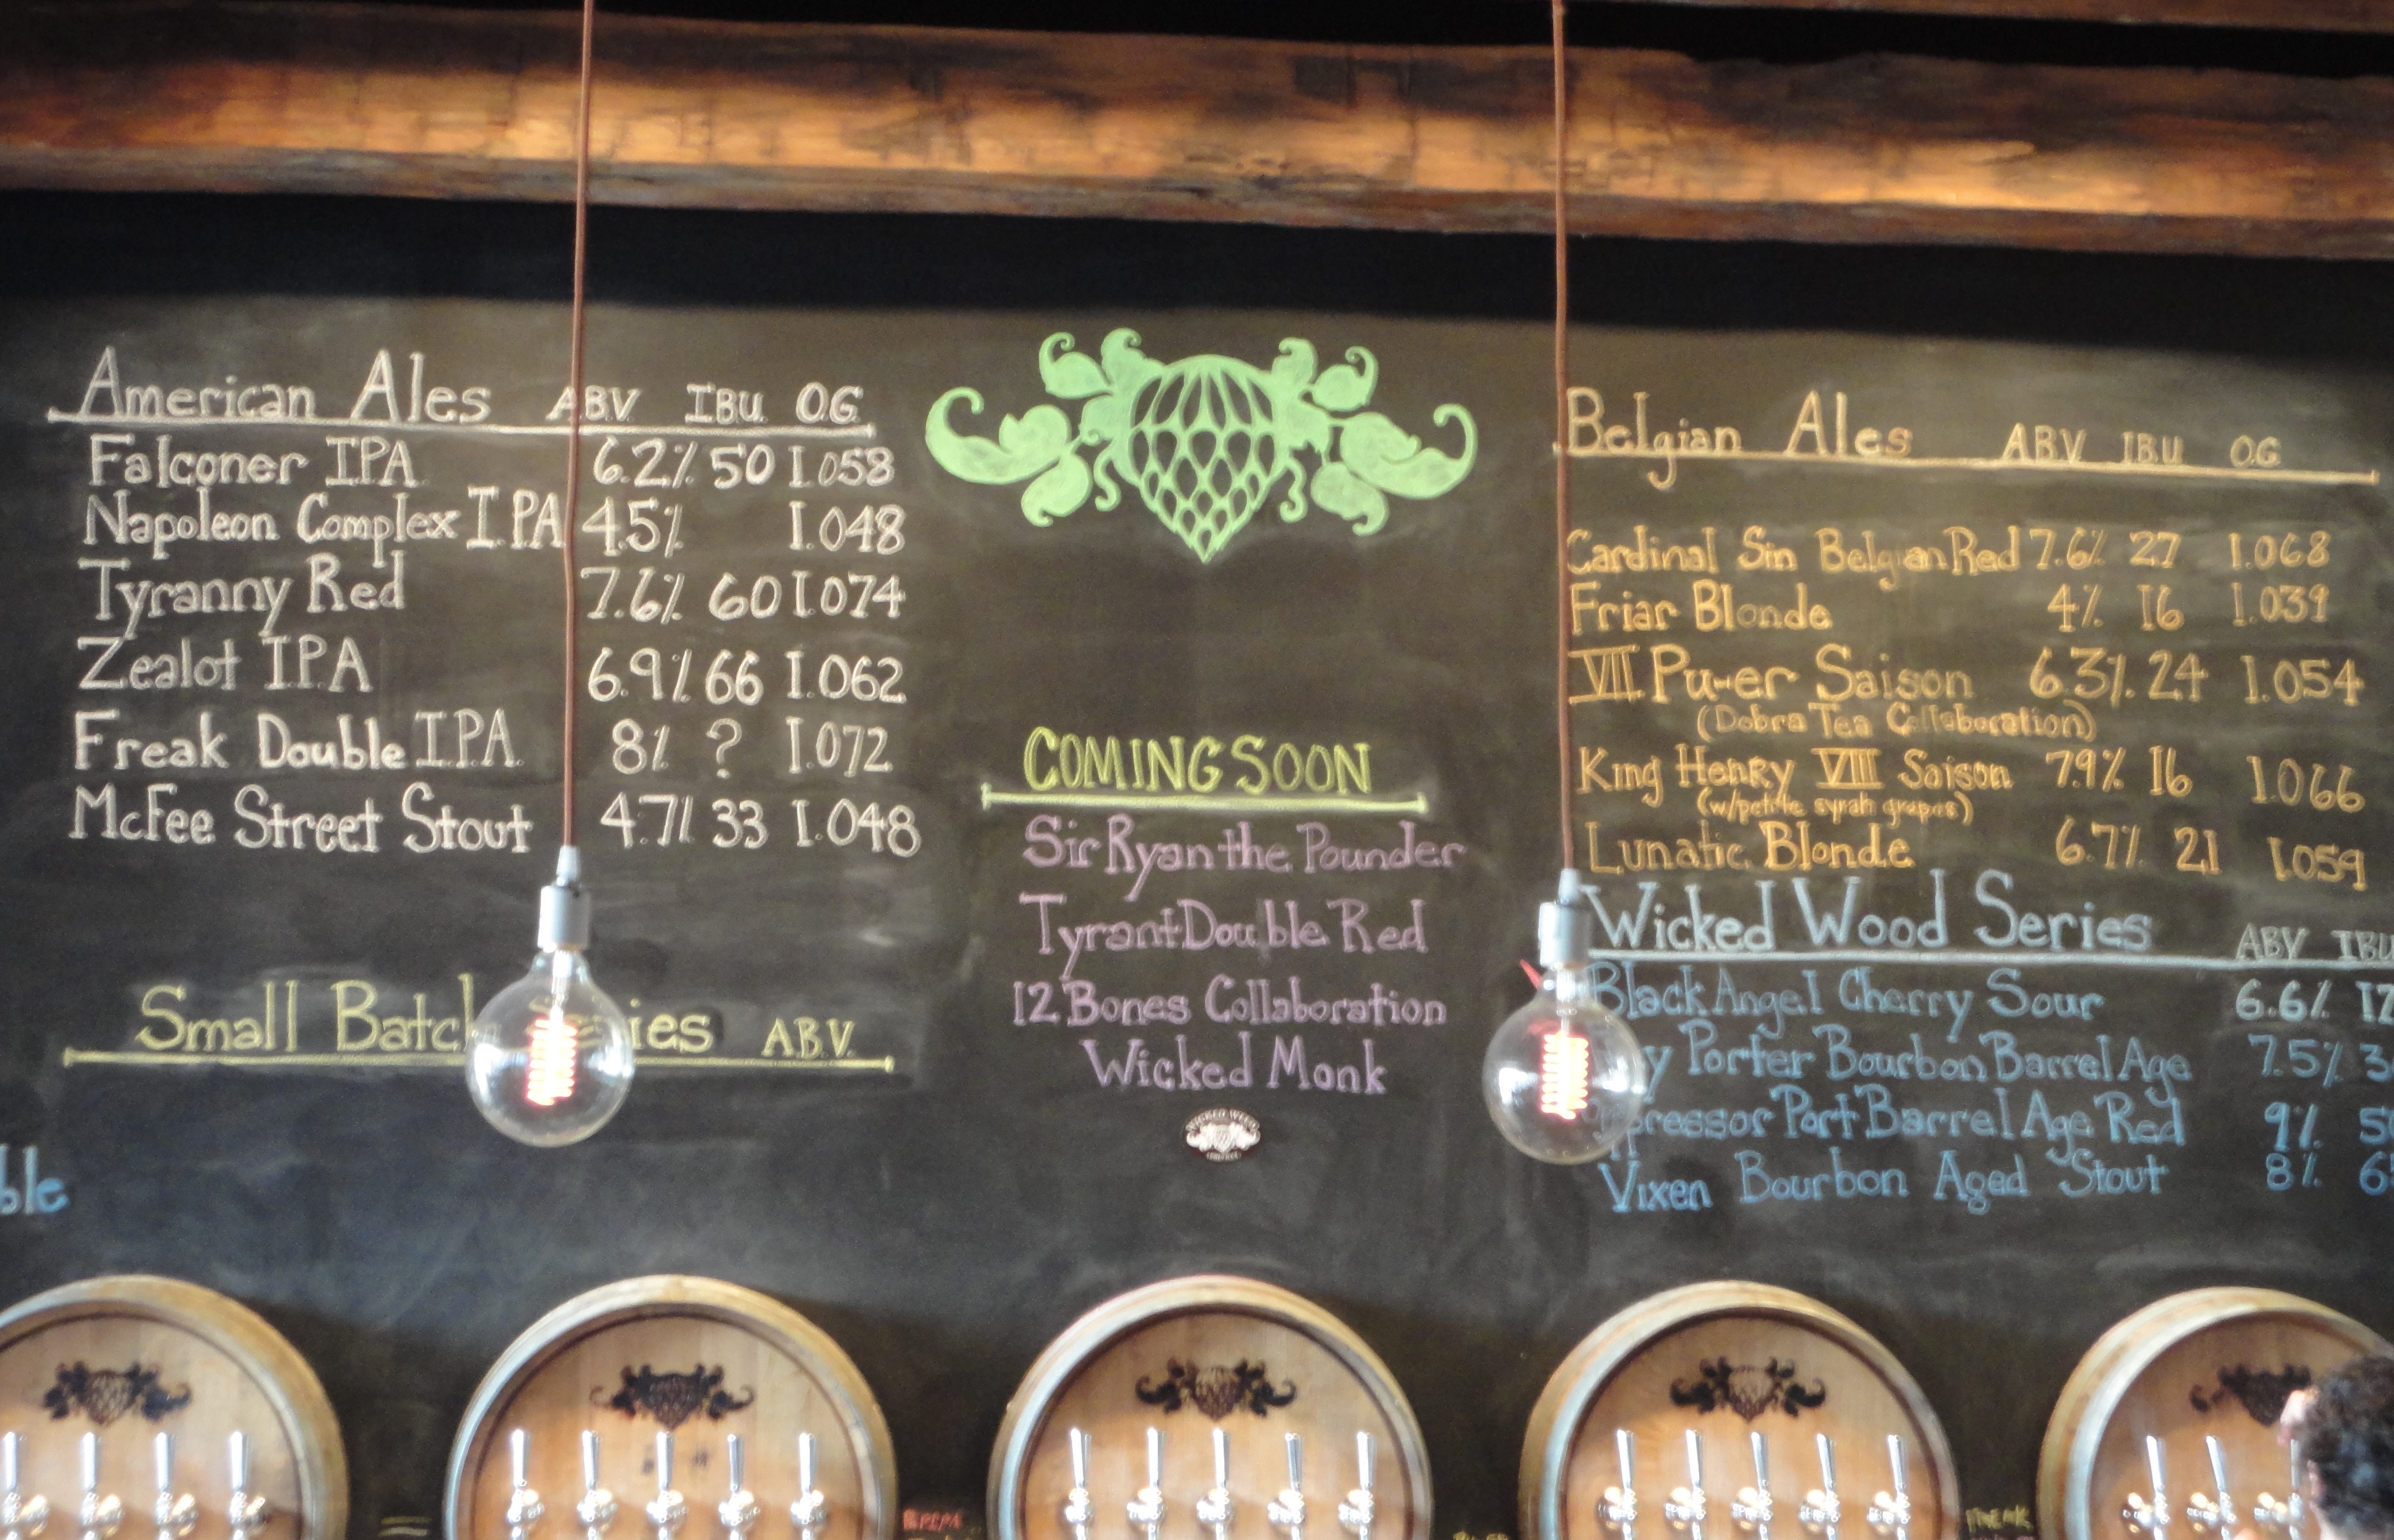 American Ales ABV IBU O.G.
Falconer IPA 6.2% 50 1.058
Napoleon Complex I.P.A 4.5% 1.048
Tyranny Red 7.6% 60 1.074
Zealot I.P.A 6.9% 66 1.062
Freak Double I.P.A. 8% ? 1.072
McFee Street Stout 4.7% 33 1.048
Small Batch A.B.V.
ble
COMING SOON
Sir Ryan the Pounder
Tyrant Double Red
12 Bones Collaboration
Wicked Monk
WICKED WEED
Belgian Ales ABV IBU O.G.
Cardinal Sin Belgian Red 7.6% 27 1.068
Friar Blonde 4% 16 1.039
VII Pu-er Saison 6.3% 24 1.054
(Dobra Tea Collaboration)
King Henry VIII Saison 7.9% 16 1.066
(w/petite syrah grapes)
Lunatic Blonde 6.7% 21 1.059
Wicked Wood Series ABV IBU
Black Angel Cherry Sour 6.6% 17
Porter Bourbon Barrel Age 7.5%
Port Barrel Age Red 9%
Vixen Bourbon Aged Stout 8%
FREAK